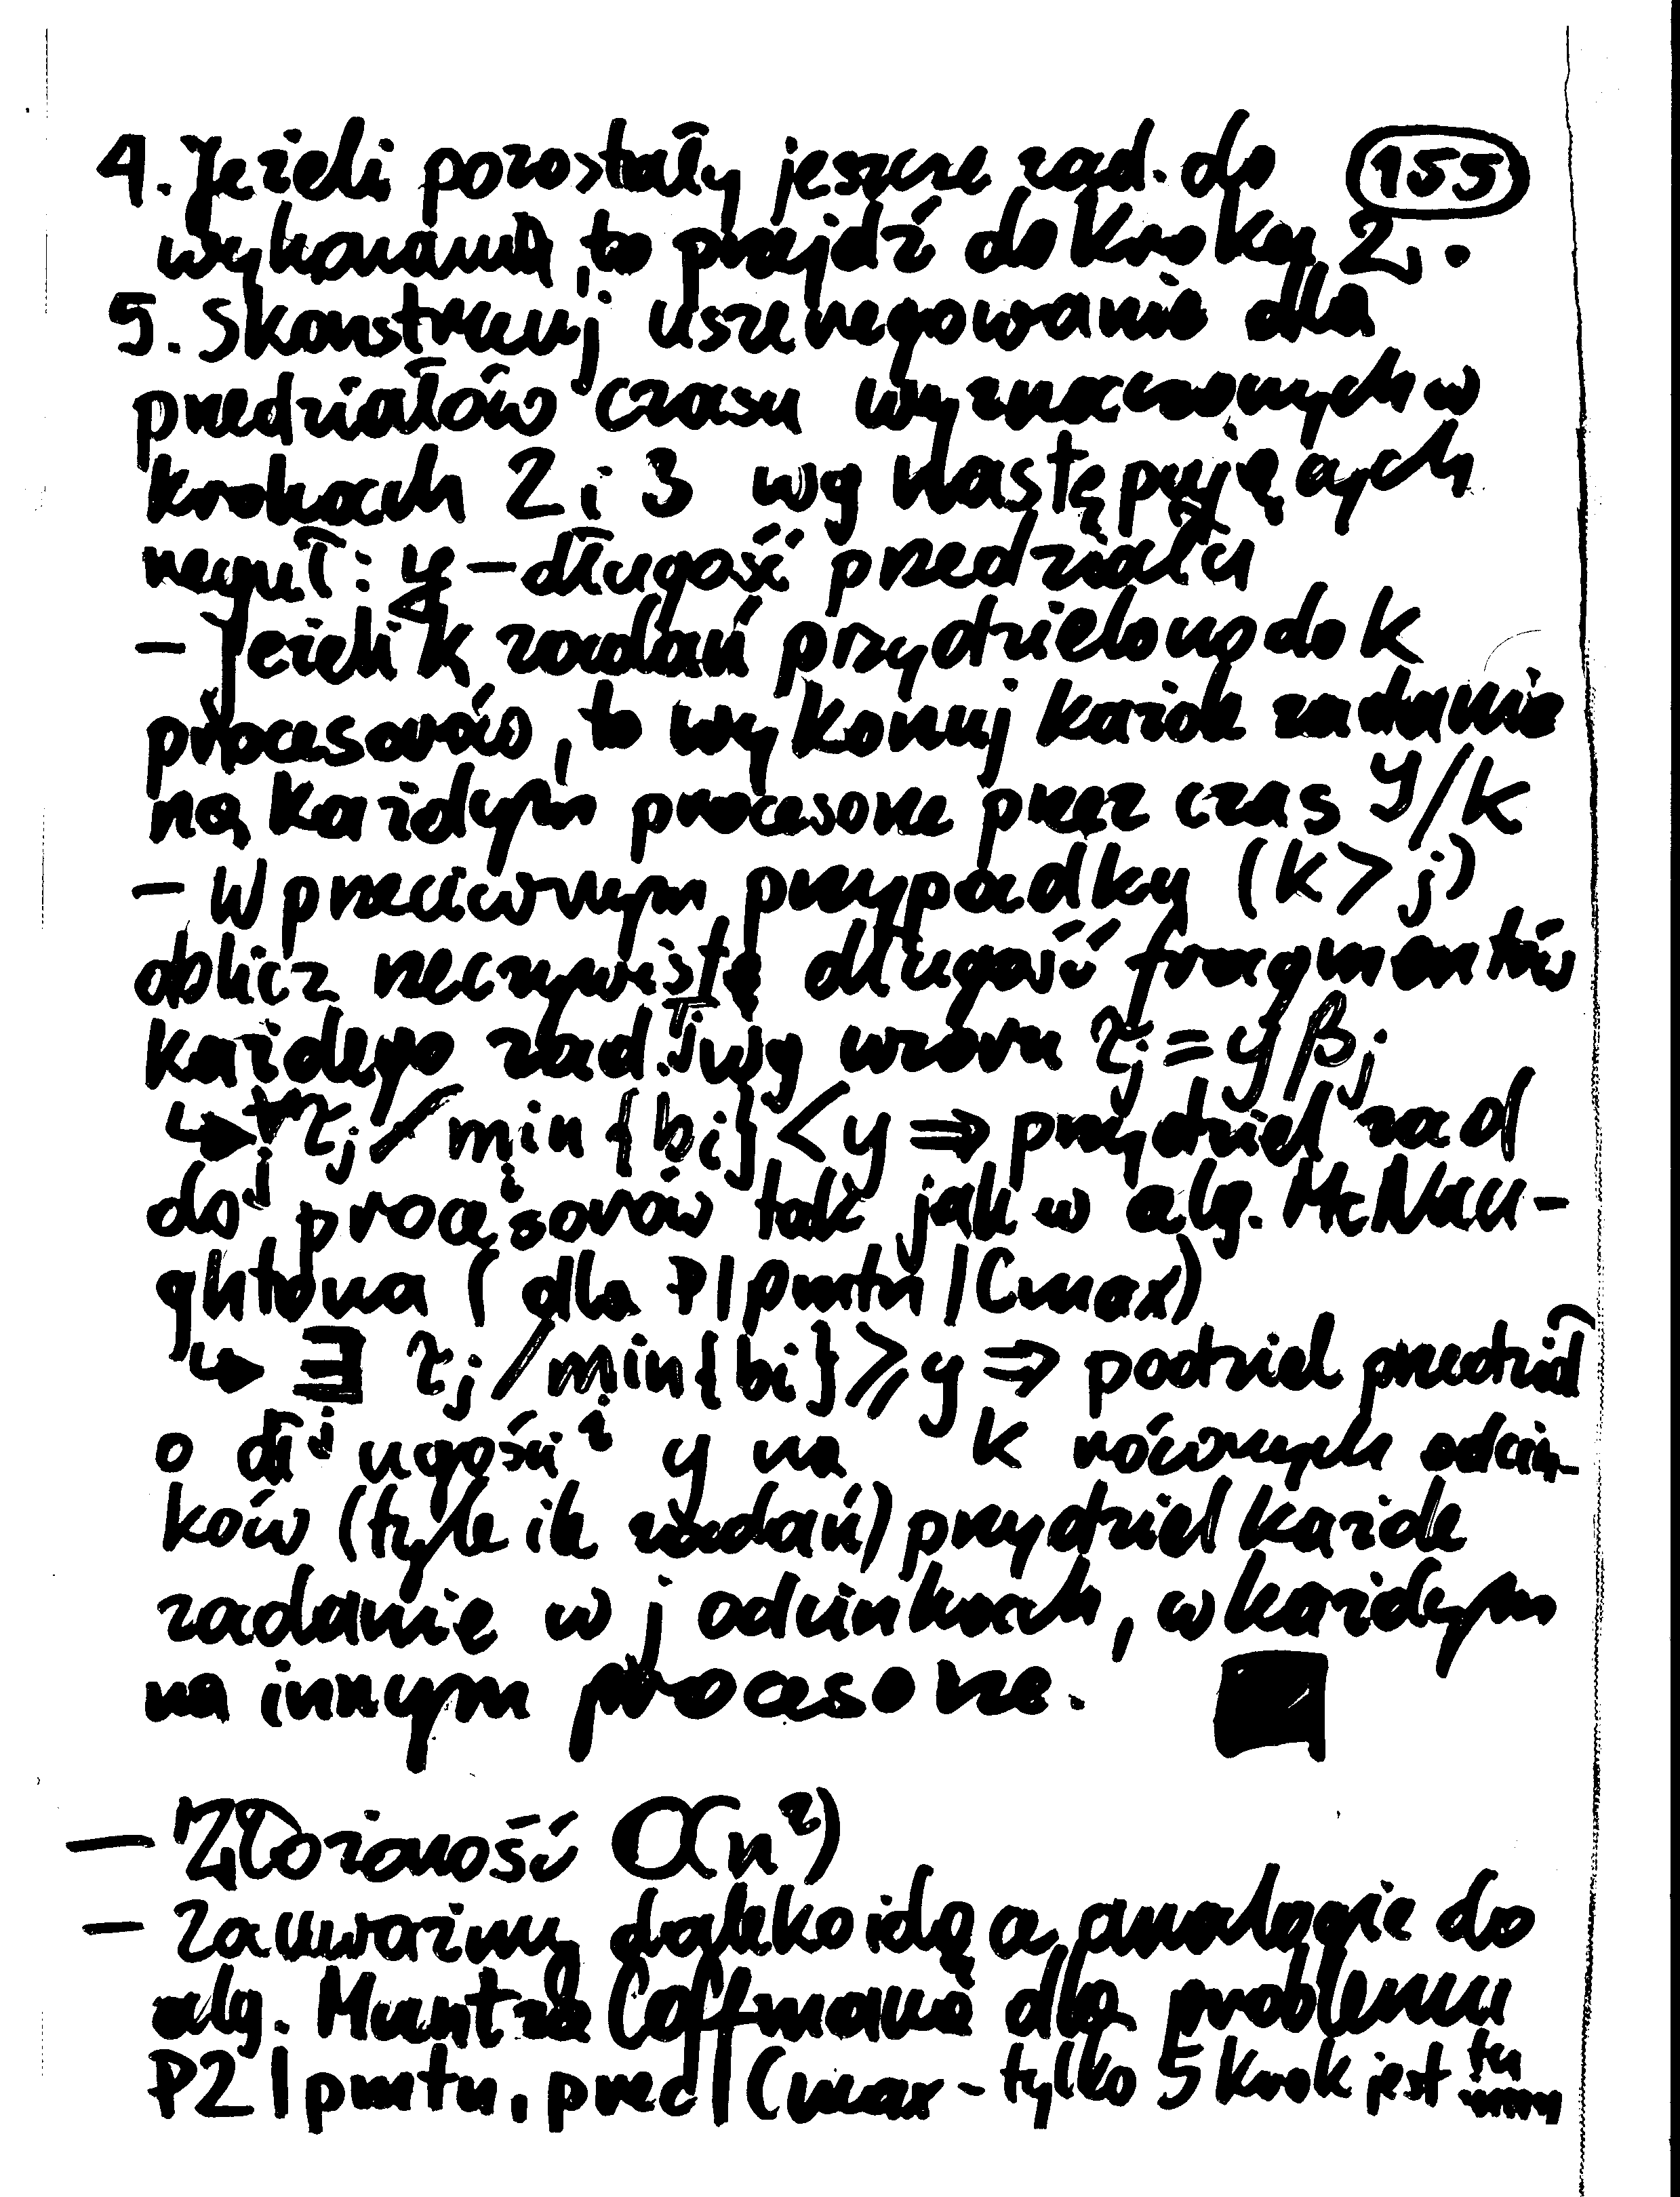 4. Jeżeli pozostały jeszcze zad. do (155)
wykonania, to przejdź do kroku 2.
5. Skonstruuj uszeregowanie dla
przedziałów czasu wyznaczonych w
krokach 2 i 3 wg następujących
reguł: y – długość przedziału
– Jeżeli k zadań przydzielono do k
procesorów, to wykonuj każde zadanie
na każdym procesorze przez czas y/k
– W przeciwnym przypadku (k > j)
oblicz rzeczywistą długość fragmentów
każdego zad. j wg wzoru τj = y βj
↳ ∀j τj / min i {bi} < y ⇒ przydziel zad
do procesorów tak jak w alg. McNau-
ghtona (dla P|pmtn|Cmax)
↳ ∃j τj / min i {bi} ⩾ y ⇒ podziel przedział
o długości y na k równych odcin-
ków (tyle ile zadań) przydziel każde
zadanie w j odcinkach, w każdym
na innym procesorze.
– Złożoność O(n²)
– Zauważmy daleko idące analogie do
alg. Muntza Coffmana dla problemu
P2|pmtn, prec|Cmax – tylko 5 krok jest tu
inny